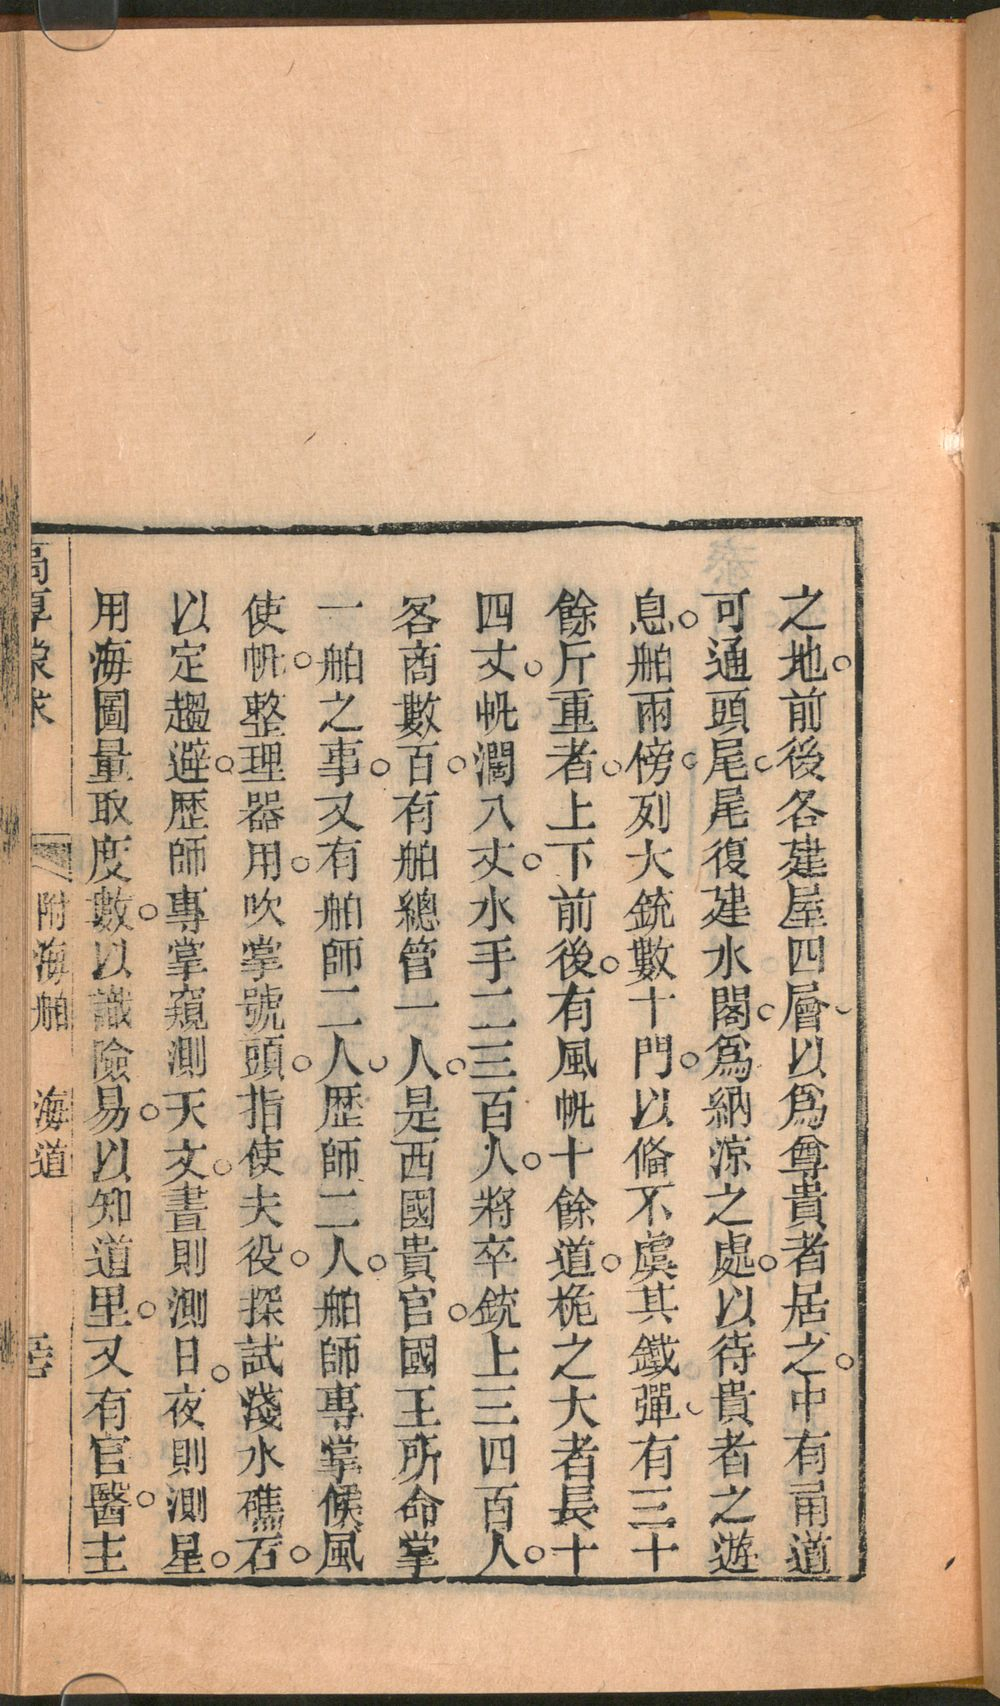 之地。前後各建屋四層、以爲尊貴者居之。中有甬道
可通頭尾、尾復建水閣、爲納涼之處。以待貴者之遊
息。舶兩傍、列大銃數十門。以俻不虞其鐵彈、有三十
餘斤重者。上下前後。有風帆十餘道。桅之大者長十
四丈。帆濶八丈。水手二三百人。將卒銃上三四百人。
客商數百。有舶總管一人。是西國貴官。國王所命掌
一舶之事。又有舶師二人、歴師二人。舶師專掌候風
使帆。整理器用。吹掌號頭。指使夫役。探試淺水礁石。
以定趨避。歴師專掌窺測天文。晝則測日。夜則測星。
用海圖量取度數。以識險易。以知道里。又有官醫。主
附海舶 海道